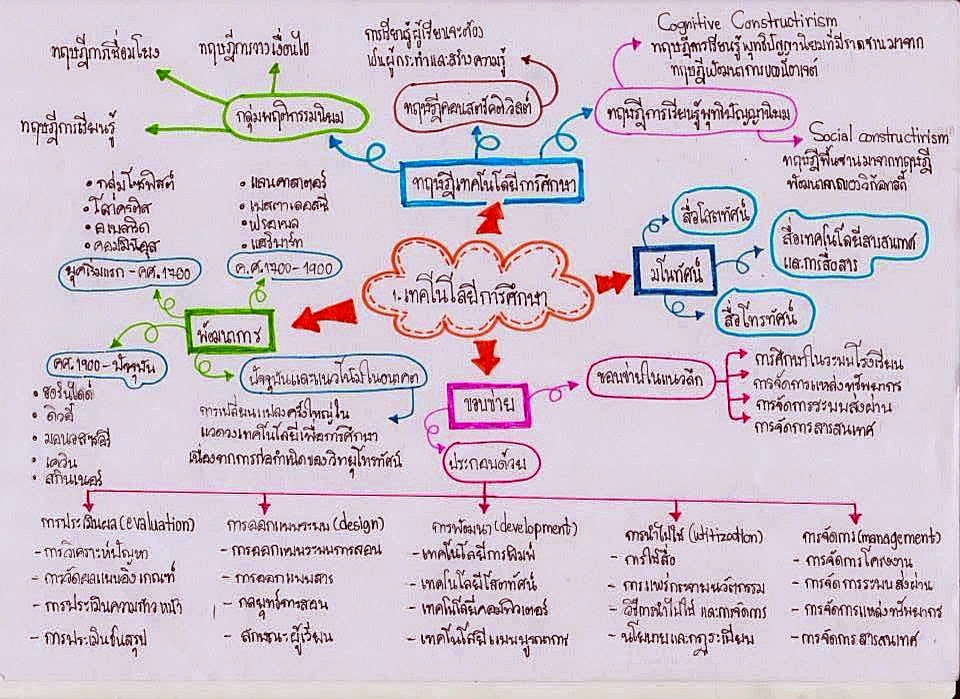 ทฤษฎีการเชื่อมโยง
ทฤษฎีการวางเงื่อนไข
ทฤษฎีการเรียนรู้
กลุ่มพฤติกรรมนิยม
การเรียนรู้ผู้เรียนจะต้อง
เป็นผู้กระทำและสร้างความรู้
ทฤษฎีคอนสตรัคติวิสต์
Cognitive Constructirism
ทฤษฎีการเรียนรู้พุทธิปัญญานิยมที่มีรากฐานมาจาก
ทฤษฎีพัฒนาการของเพียเจต์
ทฤษฎีการเรียนรู้พุทธิปัญญานิยม
Social constructirism
ทฤษฎีพื้นฐานมาจากทฤษฎี
ทฤษฎีเทคโนโลยีการศึกษา
• กลุ่มโซฟิสต์
• โสเครติส
• อเบลวิด
• คอมินิอุส
ยุคเริ่มแรก - คศ.1700
• แลนคาสเตอร์
• เพสตาลอสซี่
• ฟรอเบล
• แฮร์บาร์ท
ค.ศ.1700 - 1900
1.เทคโนโลยีการศึกษา
มโนทัศน์
สื่อโสตทัศน์
สื่อเทคโนโลยีสารสนเทศ
และการสื่อสาร
สื่อโทรทัศน์
พัฒนาการ
คศ.1900 - ปัจจุบัน
• ธอร์นไดค์
• ดิวอี้
• มอนเตสซอรี่
• เลวิน
• สกินเนอร์
ปัจจุบันและแนวโน้มในอนาคต
การเปลี่ยนแปลงครั้งใหญ่ใน
แวดวงเทคโนโลยีเพื่อการศึกษา
เนื่องจากการก่อกำเนิดของวิทยุโทรทัศน์
ขอบข่าย
ขอบข่ายในแนวลึก
การศึกษาในระบบโรงเรียน
การจัดการแหล่งทรัพยากร
การจัดการระบบส่งผ่าน
การจัดการสารสนเทศ
ประกอบด้วย
การประเมินผล(evaluation)
- การวิเคราะห์ปัญหา
- การวัดผลแบบอิงเกณฑ์
- การประเมินความก้าวหน้า
- การประเมินสรุป
การออกแบบระบบ(design)
- การออกแบบระบบการสอน
- การออกแบบสาร
- กลยุทธ์การสอน
- ลักษณะผู้เรียน
การพัฒนา(development)
- เทคโนโลยีการพิมพ์
- เทคโนโลยีโสตทัศน์
- เทคโนโลยีคอมพิวเตอร์
- เทคโนโลยีแบบบูรณาการ
การนำไปใช้(utitization)
- การใช้สื่อ
- การแพร่กระจายนวัตกรรม
- วิธีการนำไปใช้ และการจัดการ
- นโยบายและกฎระเบียบ
การจัดการ(management)
- การจัดการโครงงาน
- การจัดการระบบส่งผ่าน
- การจัดการแหล่งทรัพยากร
- การจัดการสารสนเทศ